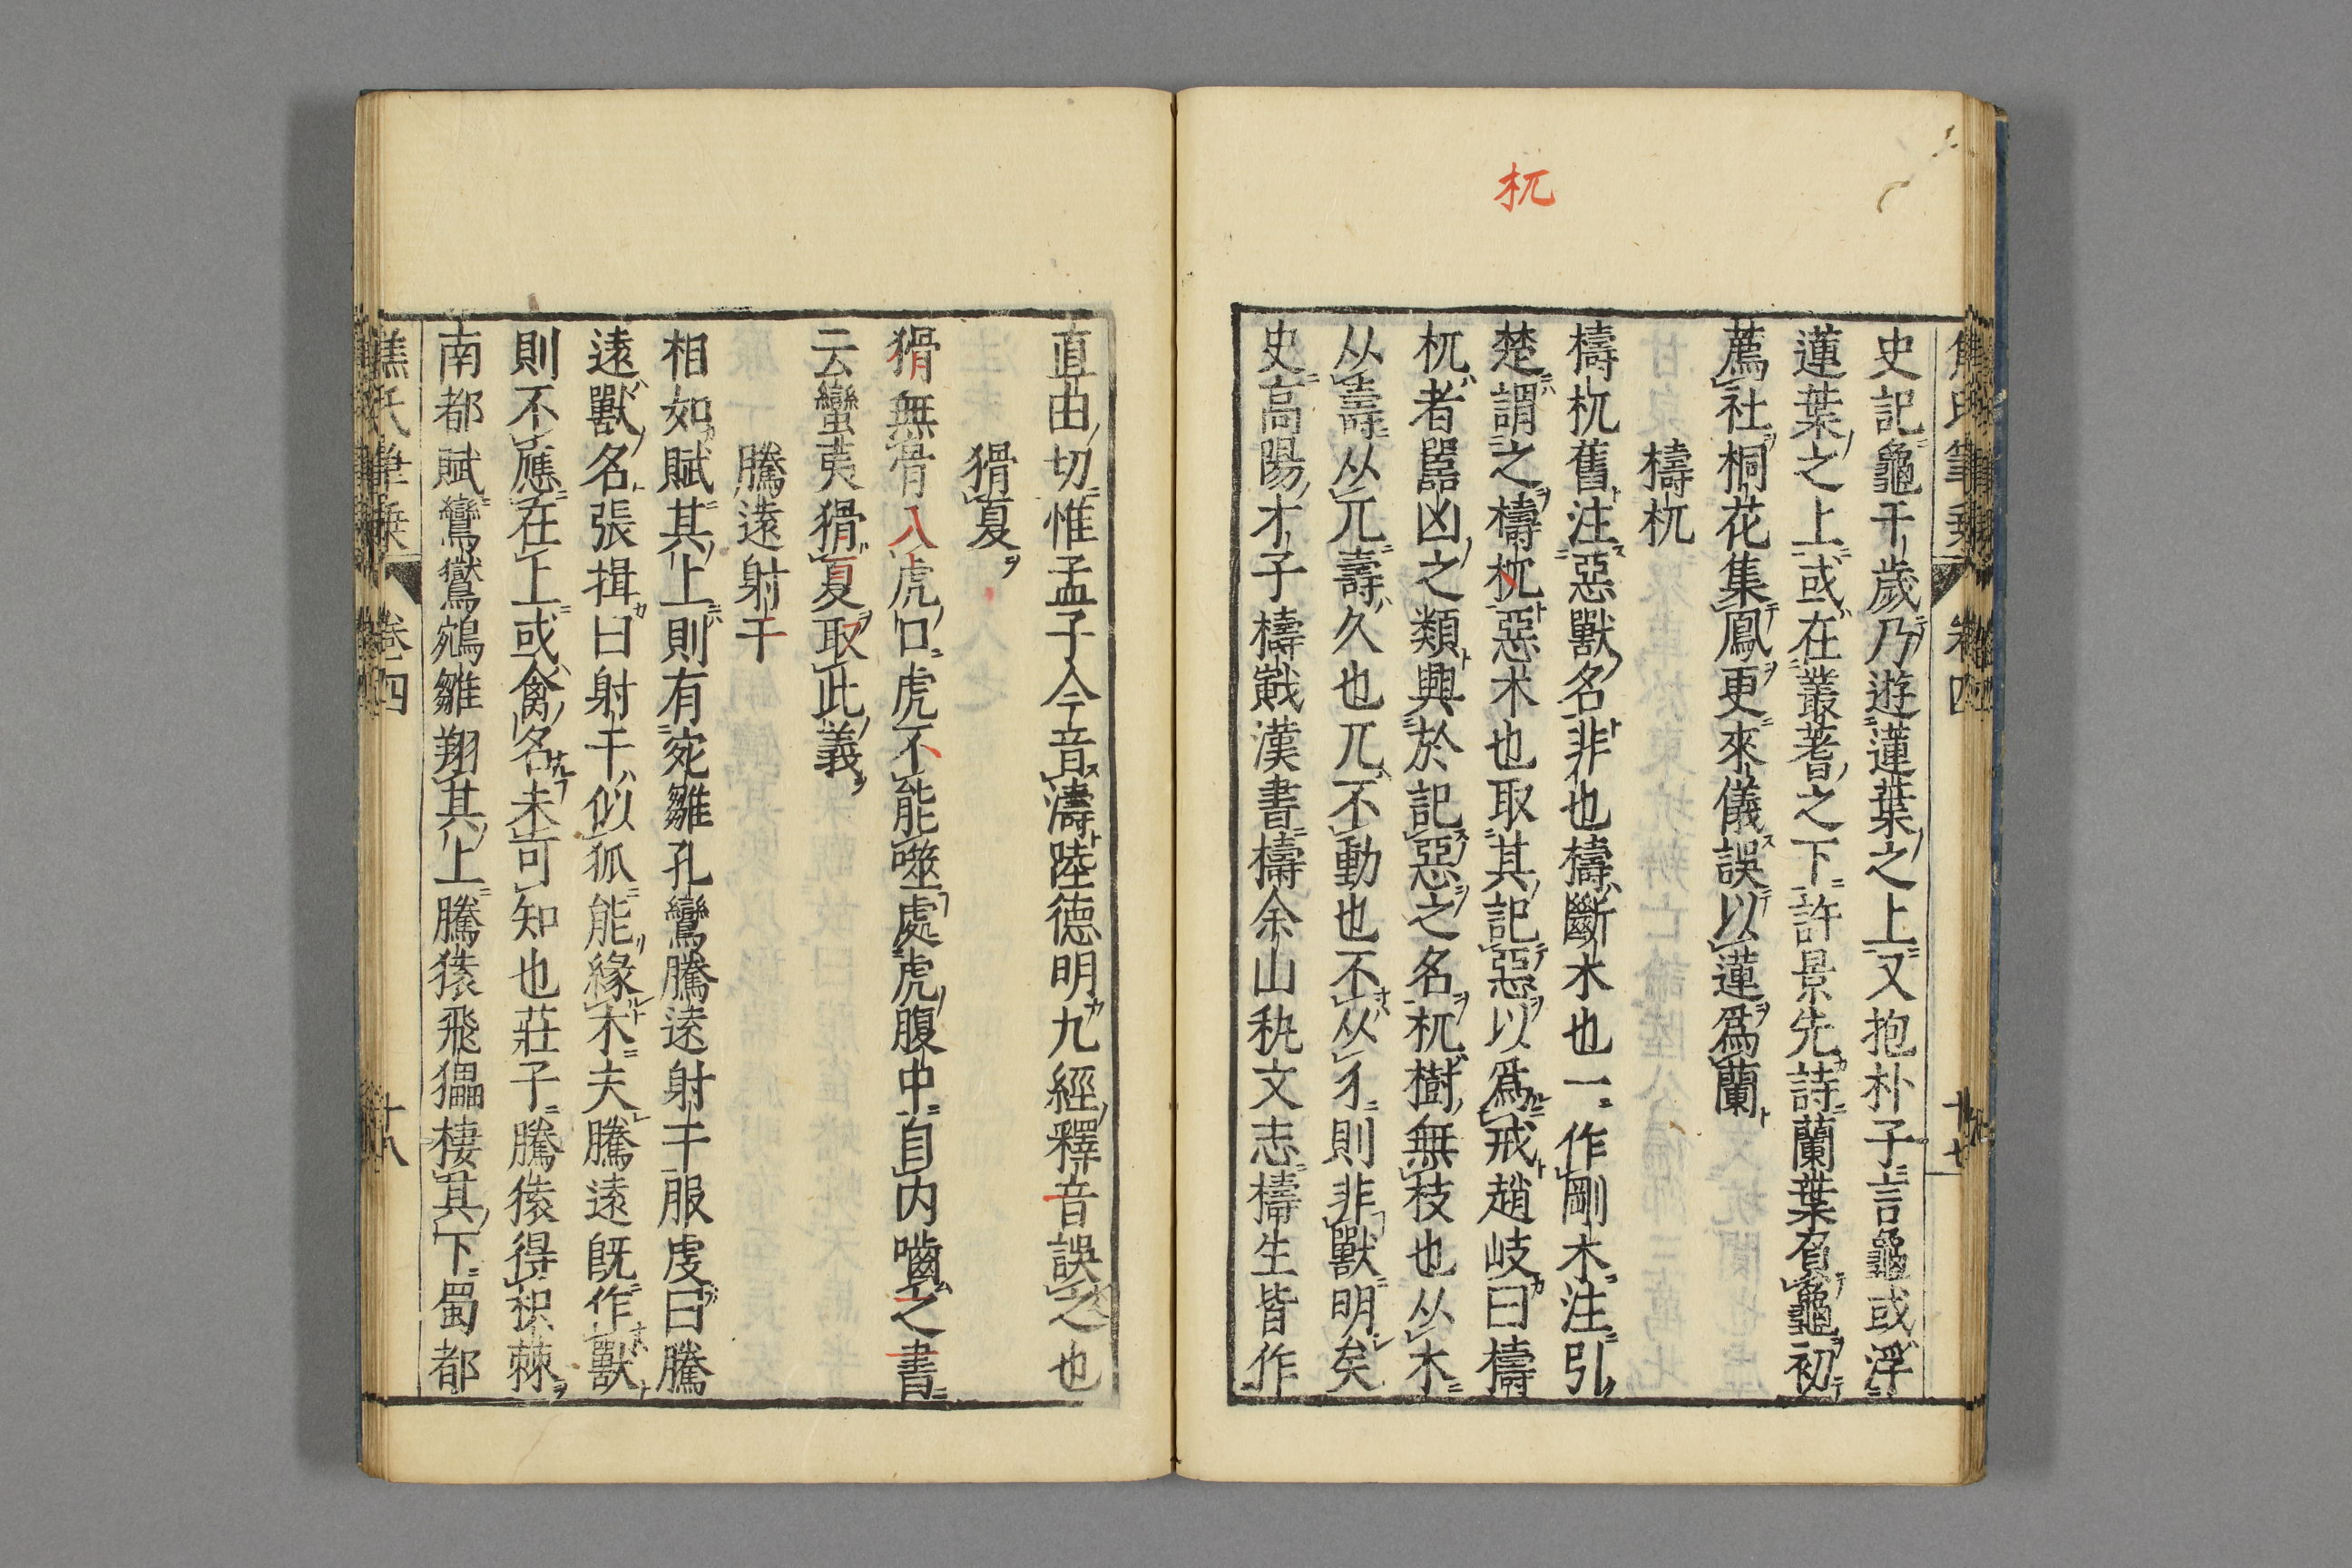 杌
史記龜千歲乃遊蓮葉之上又抱朴子言龜或浮
蓮葉之上或在叢蓍之下許景先詩蘭葉負龜初
薦社桐花集鳳更來儀誤以蓮爲蘭
檮杌
檮杌舊注惡獸名非也檮斷木也一作剛木注引
楚謂之檮杌惡木也取其記惡以爲戒趙岐曰檮
杌者嚚凶之類興於記惡之名杌樹無枝也从木
从壽从兀壽久也兀不動也不从犭則非獸明矣
史高陽才子檮戭漢書檮余山秇文志檮生皆作
直由切惟孟子今音濤陸德明九經釋音誤之也
猾夏
猾無骨入虎口虎不能噬處虎腹中自内嚙之書
云蠻夷猾夏取此義
騰遠射干
相如賦其上則有宛雛孔鸞騰遠射干服虔曰騰
遠獸名張揖曰射干似狐能緣木夫騰遠旣作獸
則不應在上或禽名未可知也莊子騰猨得枳棘
南都賦鸞鸑鵷雛翔其上騰猿飛𤣎棲其下蜀都
焦氏筆乘
卷四
十八